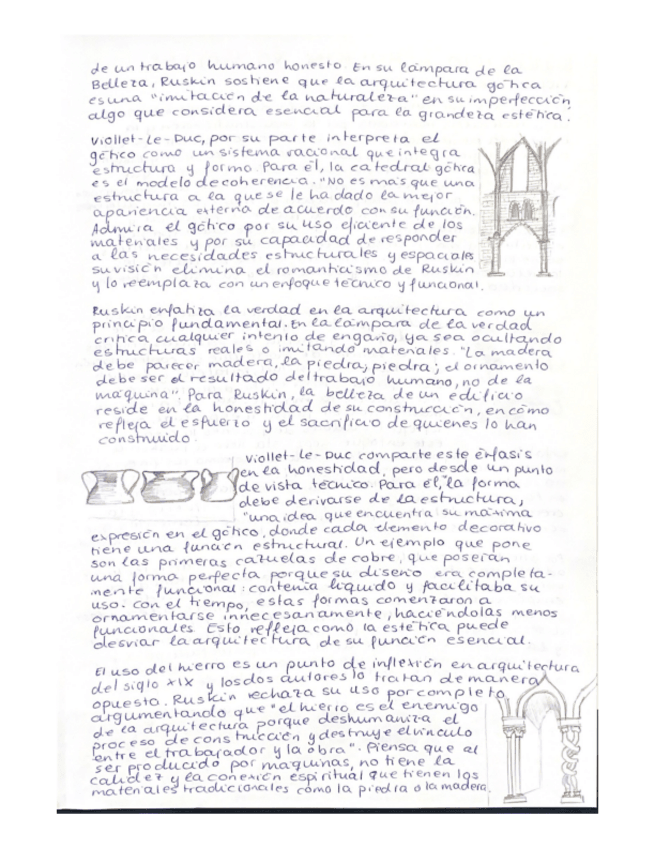 de un trabajo humano honesto. En su lámpara de la
Belleza, Ruskin sostiene que la arquitectura gótica
es una "imitación de la naturaleza" en su imperfección,
algo que considera esencial para la grandeza estética.
Viollet-le-Duc, por su parte interpreta el
gótico como un sistema racional que integra
estructura y forma. Para él, la catedral gótica
es el modelo de coherencia. "No es más que una
estructura a la que se le ha dado la mejor
apariencia externa de acuerdo con su función.
Admira el gótico por su uso eficiente de los
materiales y por su capacidad de responder
a las necesidades estructurales y espaciales
su visión elimina el romanticismo de Ruskin
y lo reemplaza con un enfoque técnico y funcional.
Ruskin enfatiza la verdad en la arquitectura como un
principio fundamental. En la lámpara de la verdad
critica cualquier intento de engaño, ya sea ocultando
estructuras reales o imitando materiales. "La madera
debe parecer madera, la piedra, piedra; el ornamento
debe ser el resultado del trabajo humano, no de la
máquina". Para Ruskin, la belleza de un edificio
reside en la honestidad de su construcción, en cómo
refleja el esfuerzo y el sacrificio de quienes lo han
construido.
Viollet-le-Duc comparte este énfasis
en la honestidad, pero desde un punto
de vista técnico. Para él, "la forma
debe derivarse de la estructura,
"una idea que encuentra su máxima
expresión en el gótico, donde cada elemento decorativo
tiene una función estructural. Un ejemplo que pone
son las primeras cazuelas de cobre, que poseían
una forma perfecta porque su diseño era completa-
mente funcional: contenía líquido y facilitaba su
uso. Con el tiempo, estas formas comenzaron a
ornamentarse innecesariamente, haciéndolas menos
funcionales. Esto refleja cómo la estética puede
desviar la arquitectura de su función esencial.
El uso del hierro es un punto de inflexión en arquitectura
del siglo XIX y los dos autores lo tratan de manera
opuesto. Ruskin rechaza su uso por completo,
argumentando que "el hierro es el enemigo
de la arquitectura porque deshumaniza el
proceso de construcción y destruye el vínculo
entre el trabajador y la obra". Piensa que al
ser producido por máquinas, no tiene la
calidez y la conexión espiritual que tienen los
materiales tradicionales como la piedra o la madera.